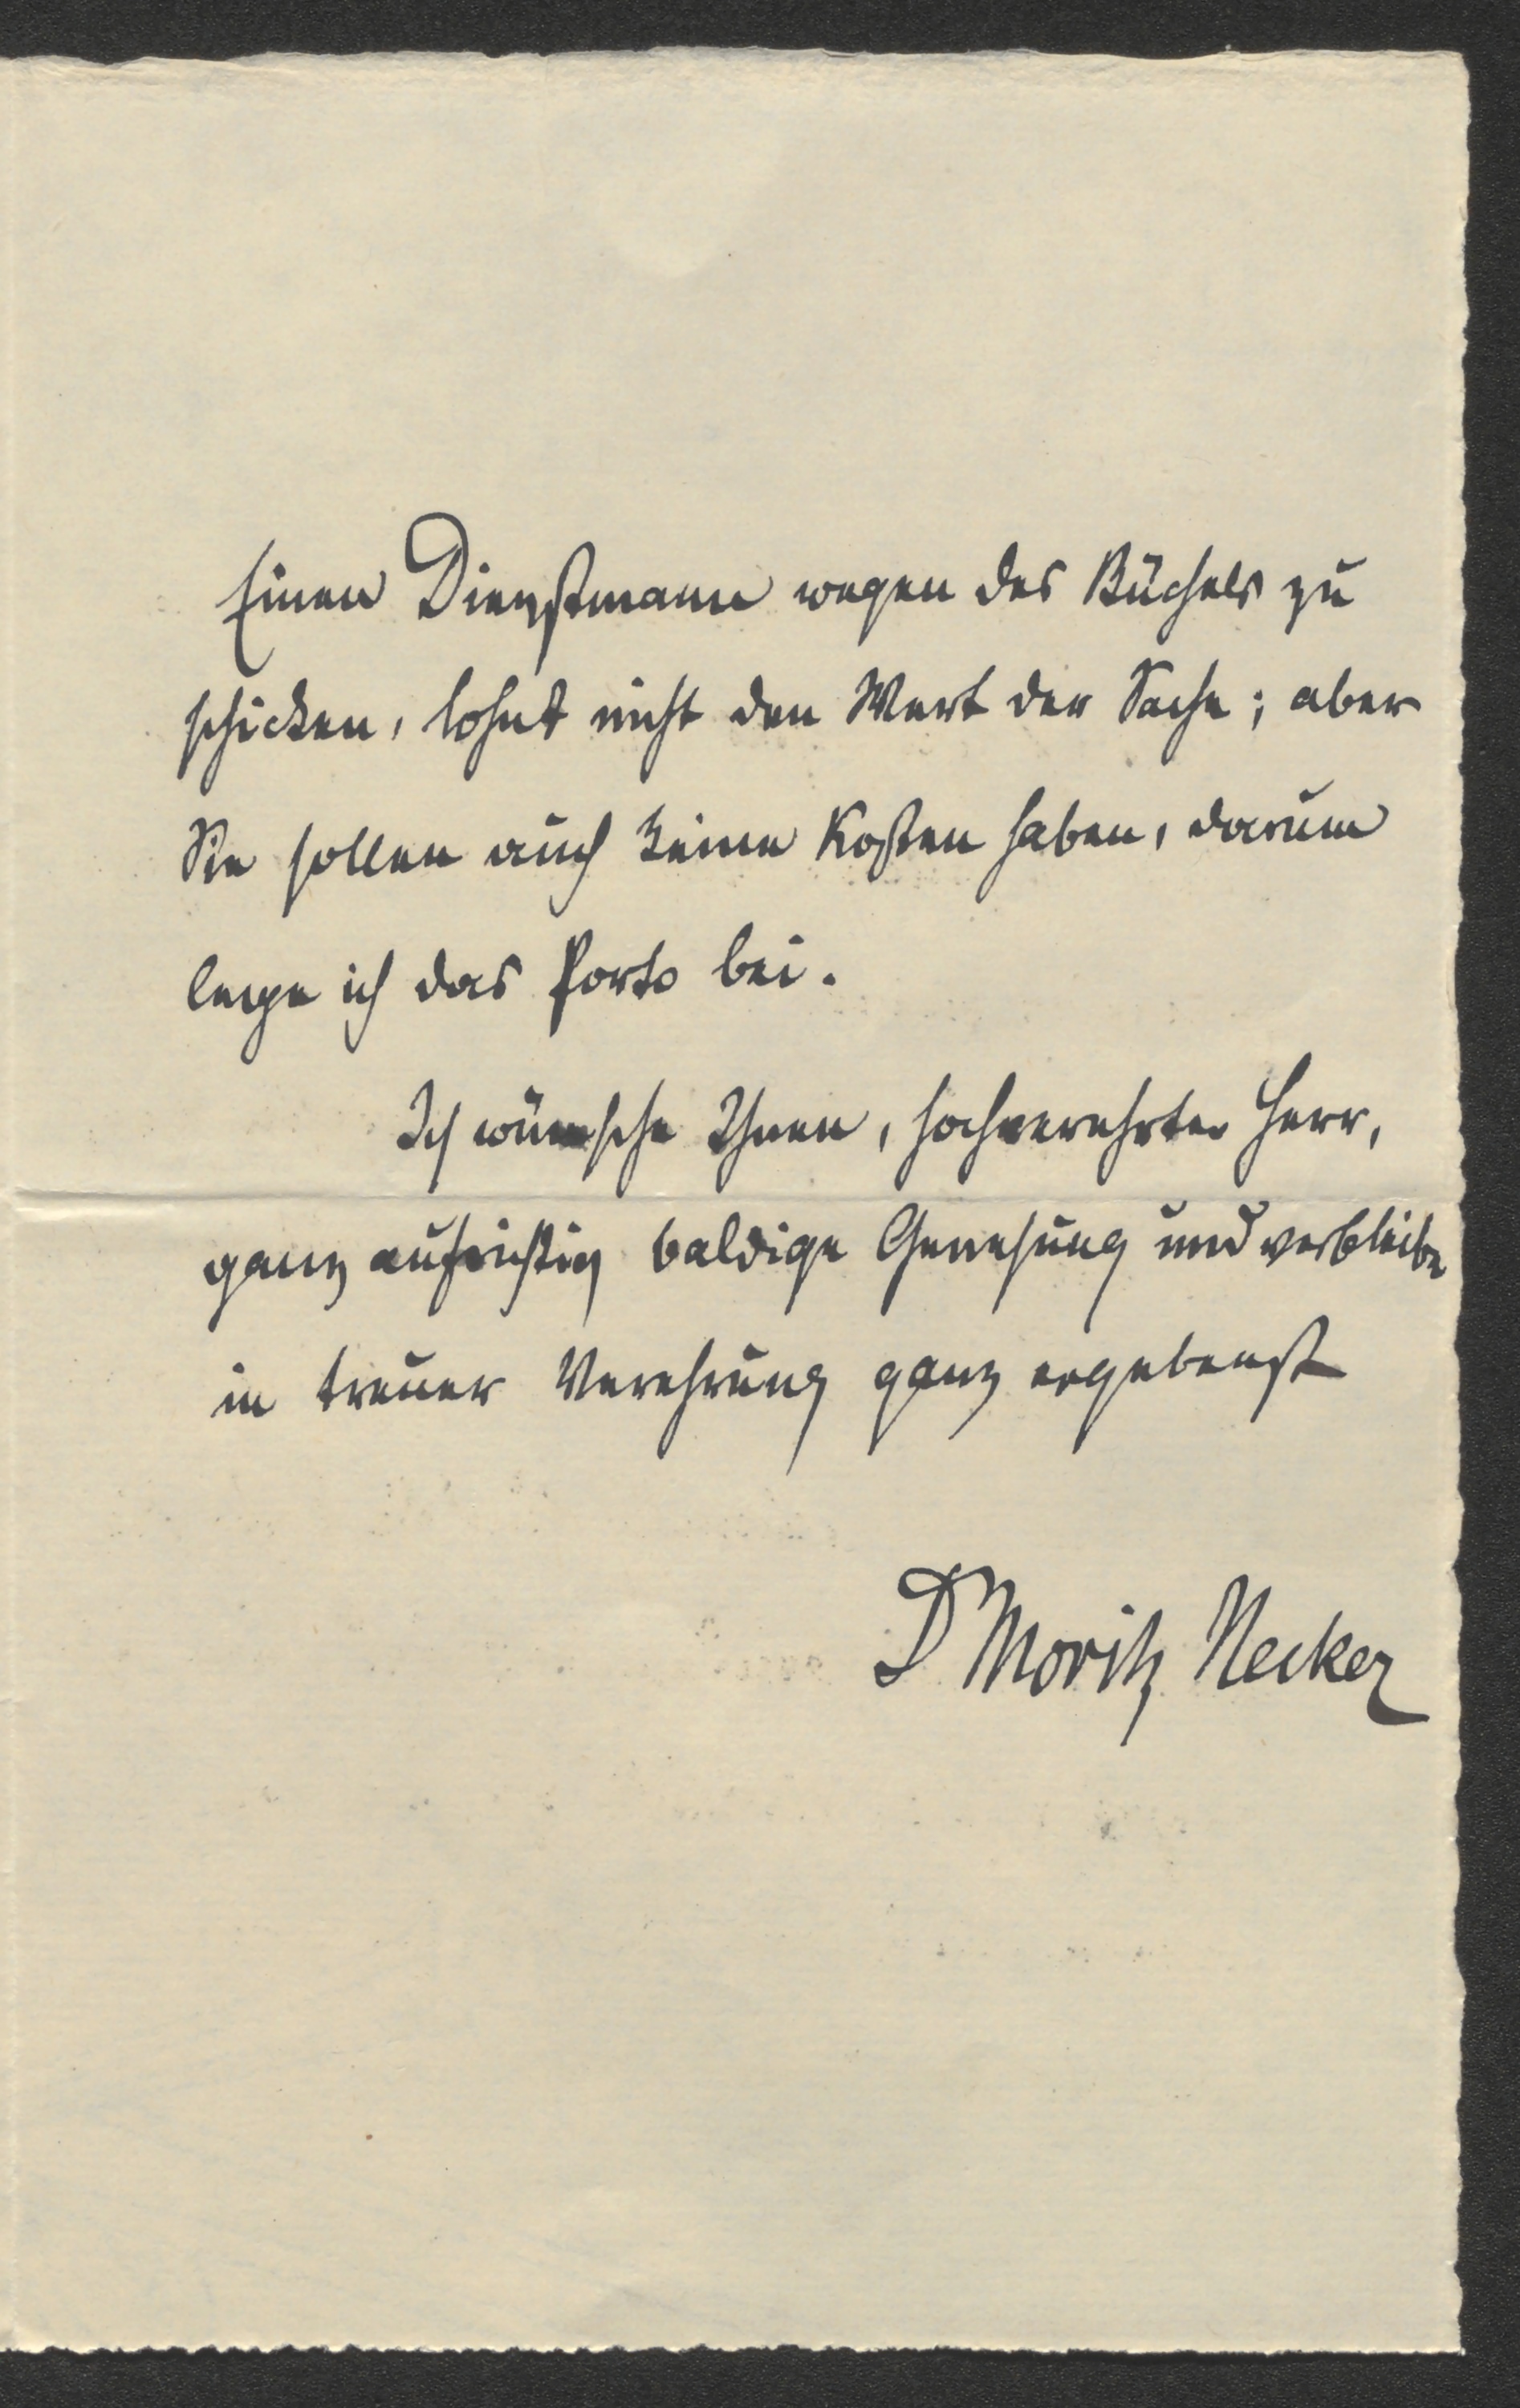 Einen Dienstmann wegen des Büchels zu
schicken, lohnt nicht den Wert der Sache; aber
Sie sollen auch keine Kosten haben, darum
lege ich das Porto bei.
Ich wünsche Ihnen, hochverehrter Herr,
ganz aufrichtig baldige Genesung und verbleibe
in treuer Verehrung ganz ergebenst
D Moritz Necker